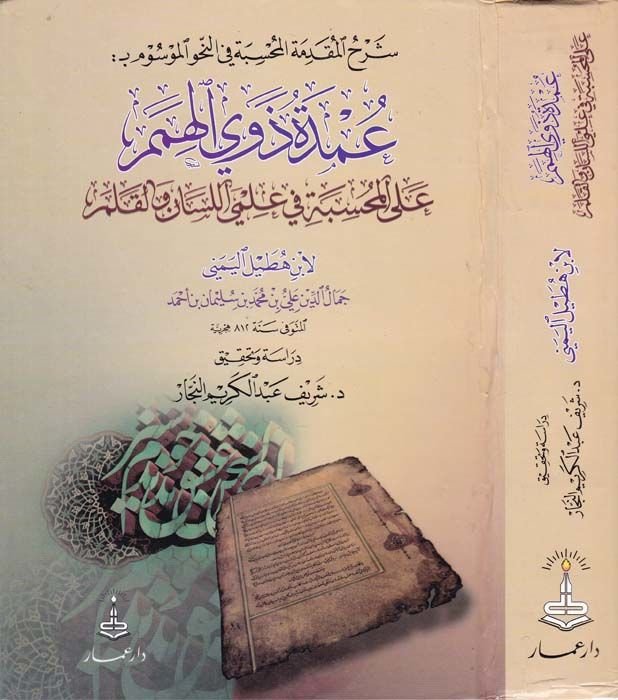 شرح المقدمة المحسبة في النحو الموسوم بـ:
عُمْدَة ذَوِي الهِمَم
عَلى المُحْسِبَة فِي عِلْمَي اللسَان وَالقَلَم
لابن هُطَيل اليمني
جمال الدين علي بن محمد بن سليمان بن أحمد
المتوفى سنة ٨١٢ هجرية
دراسة وتحقيق
د. شريف عبد الكريم النجار
دار عمار
عُمْدَة ذَوِي الهِمَم
عَلى المُحْسِبَة فِي عِلْمَي اللسَان وَالقَلَم
لابن هُطَيل اليمني
دراسة وتحقيق
د. شريف عبد الكريم النجار
دار عمار